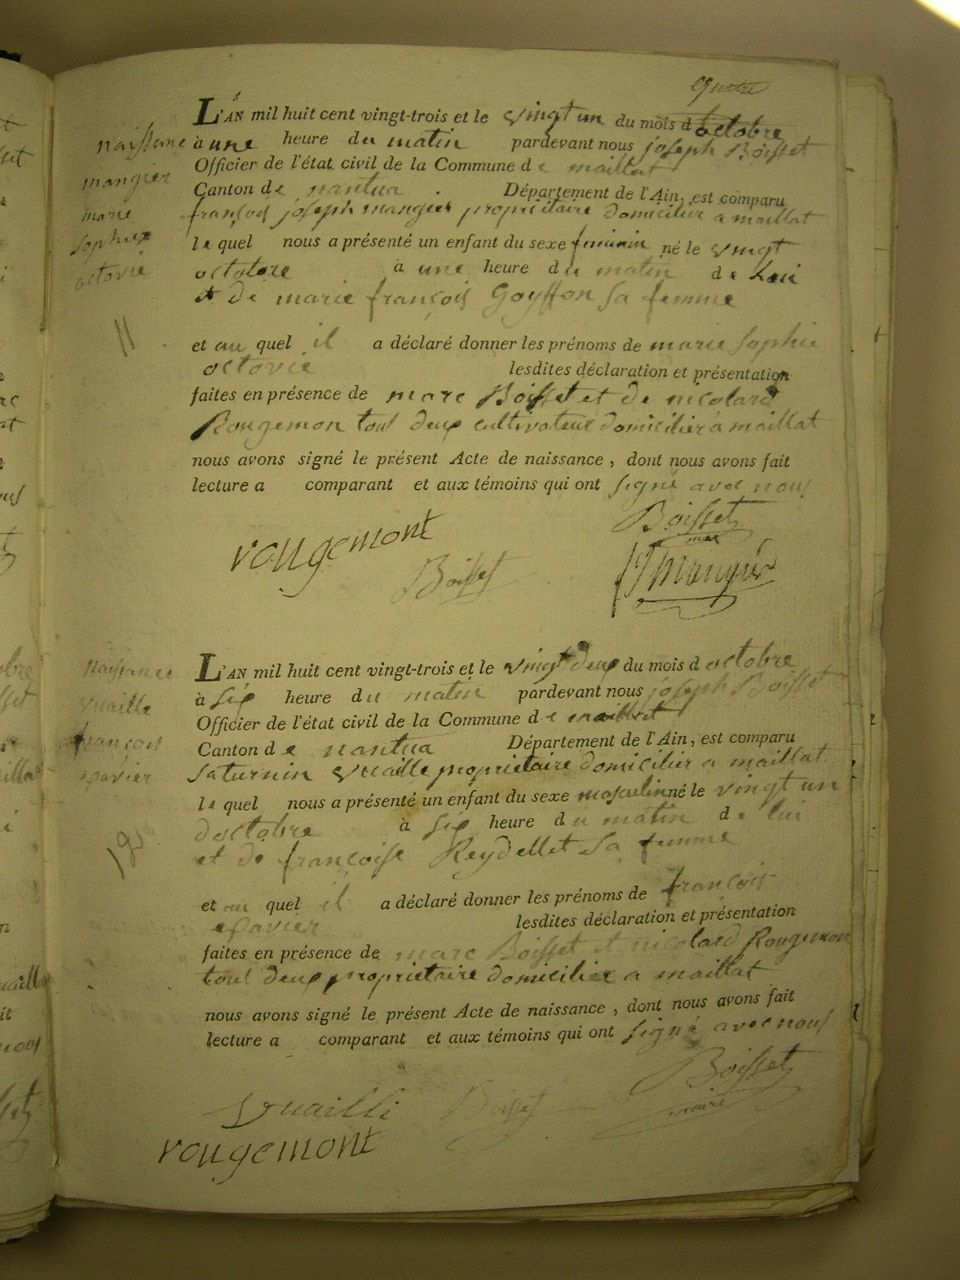 quatre
L'AN mil huit cent vingt-trois et le vingt un du mois d octobre
à une heure du matin pardevant nous joseph Boisset
Officier de l'état civil de la Commune de maillat
Canton de nantua . Département de l'Ain, est comparu
françois joseph mangier propriétaire domicilier a maillat
le quel nous a présenté un enfant du sexe feminin né le vingt
octobre à une heure du matin de Lui
et de marie françois Goyffon sa femme
et au quel il a déclaré donner les prénoms de marie Sophie
octavie lesdites déclaration et présentation
faites en présence de marc Boisset et de nicolard
Rougemon tout deux cultivateur domicilier à maillat
nous avons signé le présent Acte de naissance, dont nous avons fait
lecture a comparant et aux témoins qui ont signé avec nous
naissance
mangier
marie
sophie
octavie
11
Boisset
maire
rougemont
Boisset
mangier
L'AN mil huit cent vingt-trois et le vingt deux du mois d octobre
à six heure du matin pardevant nous joseph Boisset
Officier de l'état civil de la Commune de maillat
Canton de nantua Département de l'Ain, est comparu
Saturnin vuaille proprietaire domicilier a maillat
le quel nous a présenté un enfant du sexe masculin né le vingt un
doctobre à six heure du matin de lui
et de françoise Reydellet sa femme
et au quel il a déclaré donner les prénoms de françois
xavier lesdites déclaration et présentation
faites en présence de marc Boisset et nicolard Rougemon
tout deux propriétaire domicilier a maillat
nous avons signé le présent Acte de naissance, dont nous avons fait
lecture a comparant et aux témoins qui ont signé avec nous
Naissance
vuaille
françois
xavier
Boisset
maire
Vuailli
Boisset
rougemont